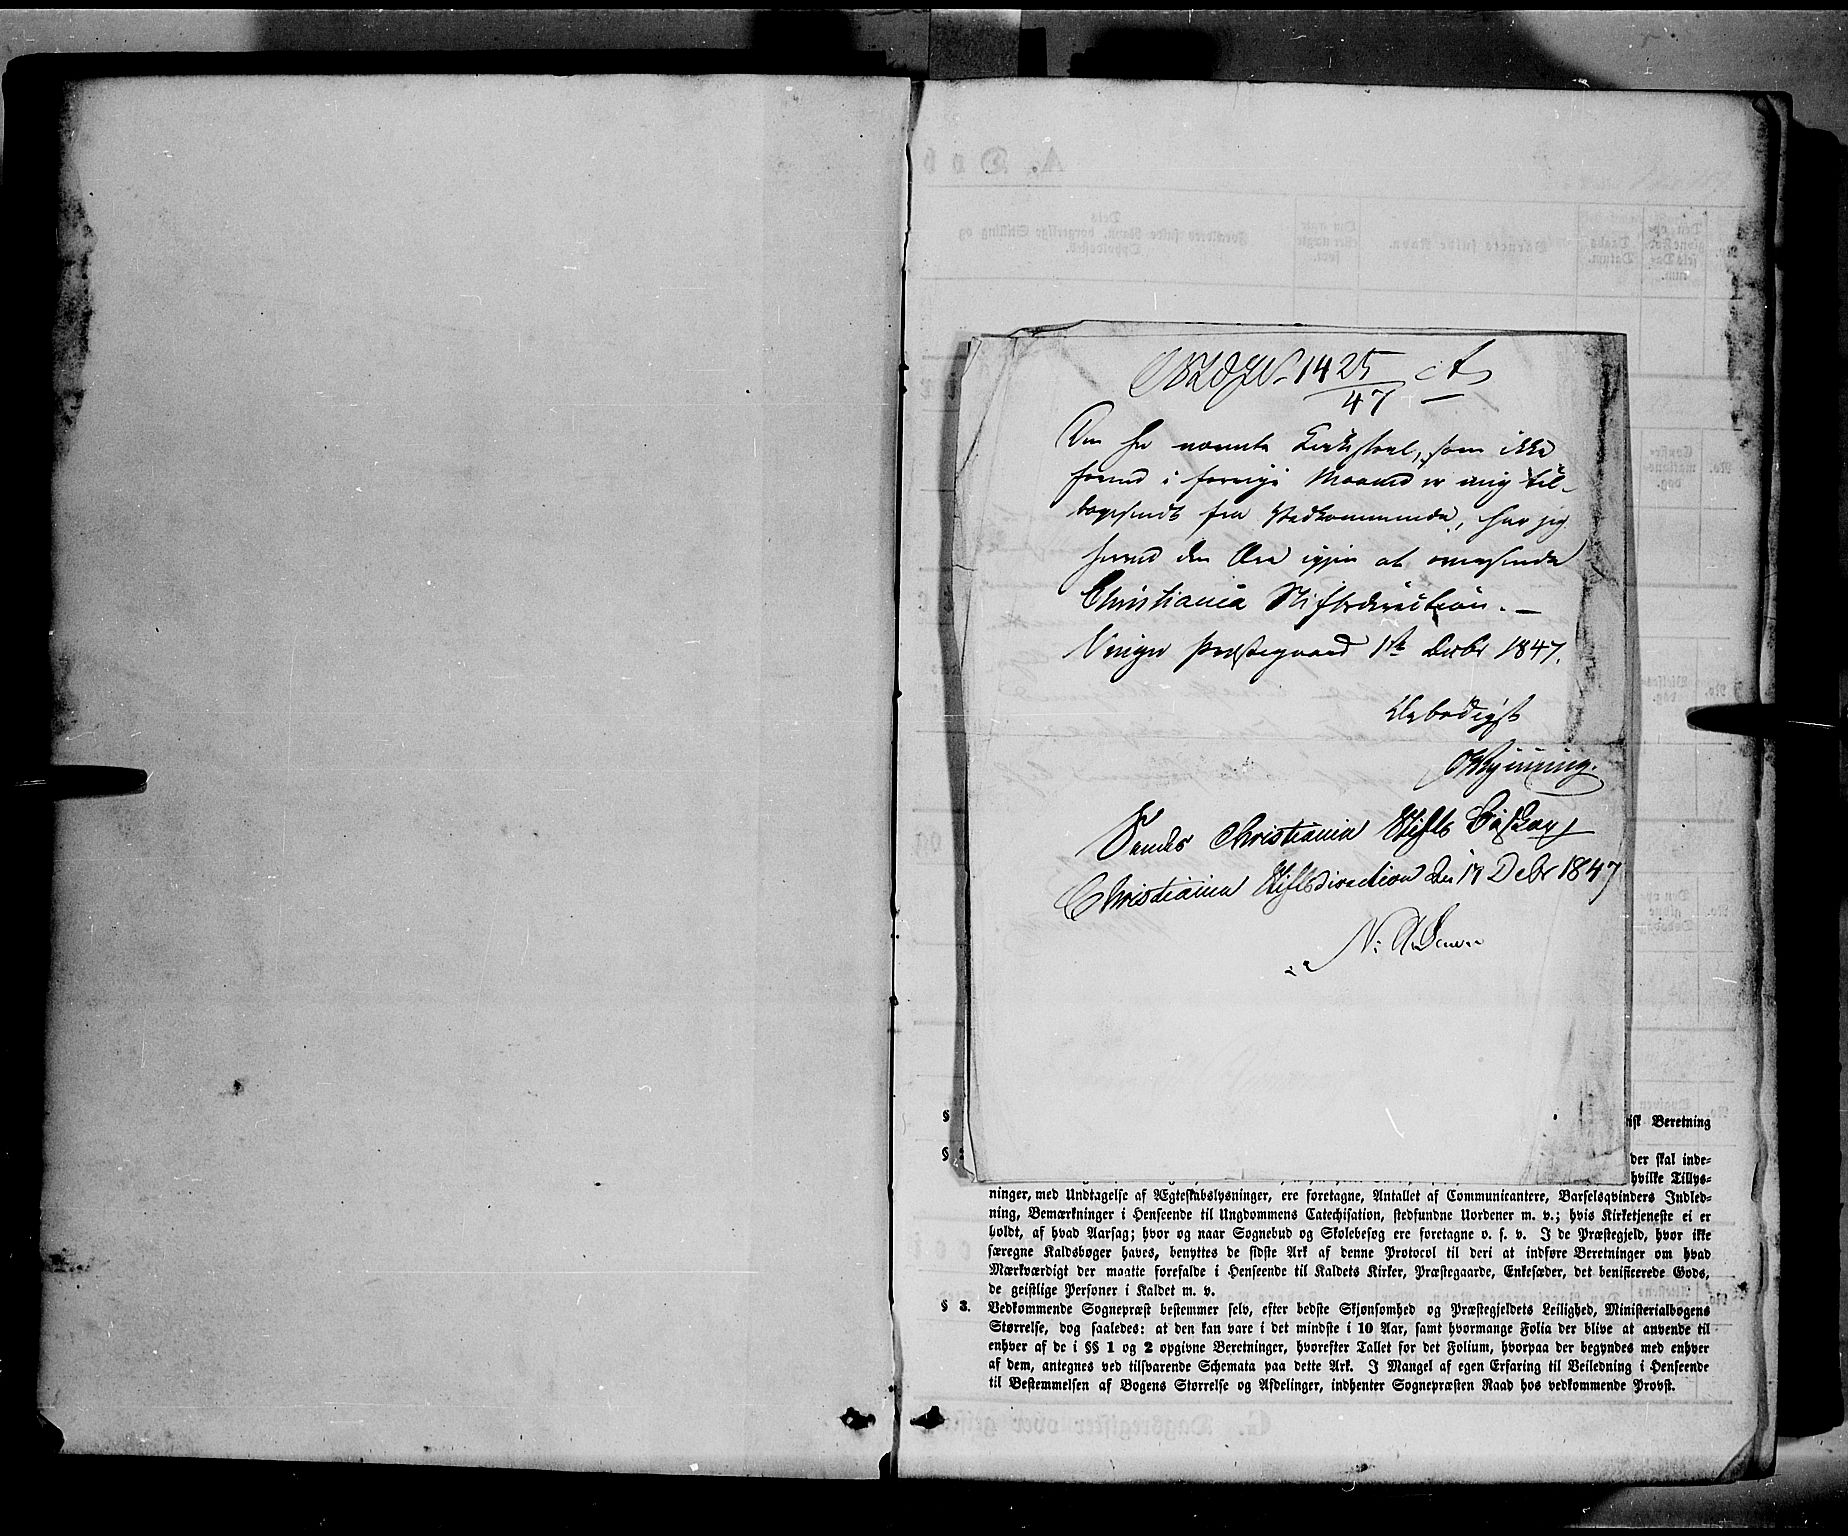 1425 A
47
Den her nævnte som ikke
forend i forrige Maaned er mig til-
bagesendt fra Vedkommende, har jeg
herved den Ære igjen at oversende
Christiania Stiftsdirection. —
Vinger Præstegaard 1ste Decbr 1847.
Ærbødigst
Sendes Christiania Stifts
Christiania Stiftsdirection den 17 Decbr 1847
§
isk Beretning
§ 2
der skal inde-
hvilke Tillys-
ninger, med Undtagelse af Ægteskabslysninger, ere foretagne, Antallet af Communicantere, Barselqvinders Indled-
ning, Bemærkninger i Henseende til Ungdommens Catechisation, stedfundne Uordener m. v.; hvis Kirketjeneste ei er
holdt, af hvad Aarsag; hvor og naar Sognebud og Skolebesøg ere foretagne o. s. v. I de Præstegjeld, hvor ikke
særegne Kaldsbøger haves, benyttes de sidste Ark af denne Protocol til deri at indføre Beretninger om hvad
Mærkværdigt der maatte forefalde i Henseende til Kaldets Kirker, Præstegaarde, Enkesæder, det benificerede Gods,
de geistlige Personer i Kaldet m. v.
§ 3. Vedkommende Sognepræst bestemmer selv, efter bedste Skjønsomhed og Præstegjeldets Leilighed, Ministerialbogens
Størrelse, dog saaledes: at den kan vare i det mindste i 10 Aar, samt hvormange Folia der blive at anvende til
enhver af de i §§ 1 og 2 opgivne Beretninger, hvorefter Tallet for det Folium, hvorpaa der begyndes med enhver
af dem, antegnes ved tilsvarende Schemata paa dette Ark. I Mangel af egen Erfaring til Veiledning i Henseende
til Bestemmelsen af Bogens Størrelse og Afdelinger, indhenter Sognepræsten Raad hos vedkommende Provst.